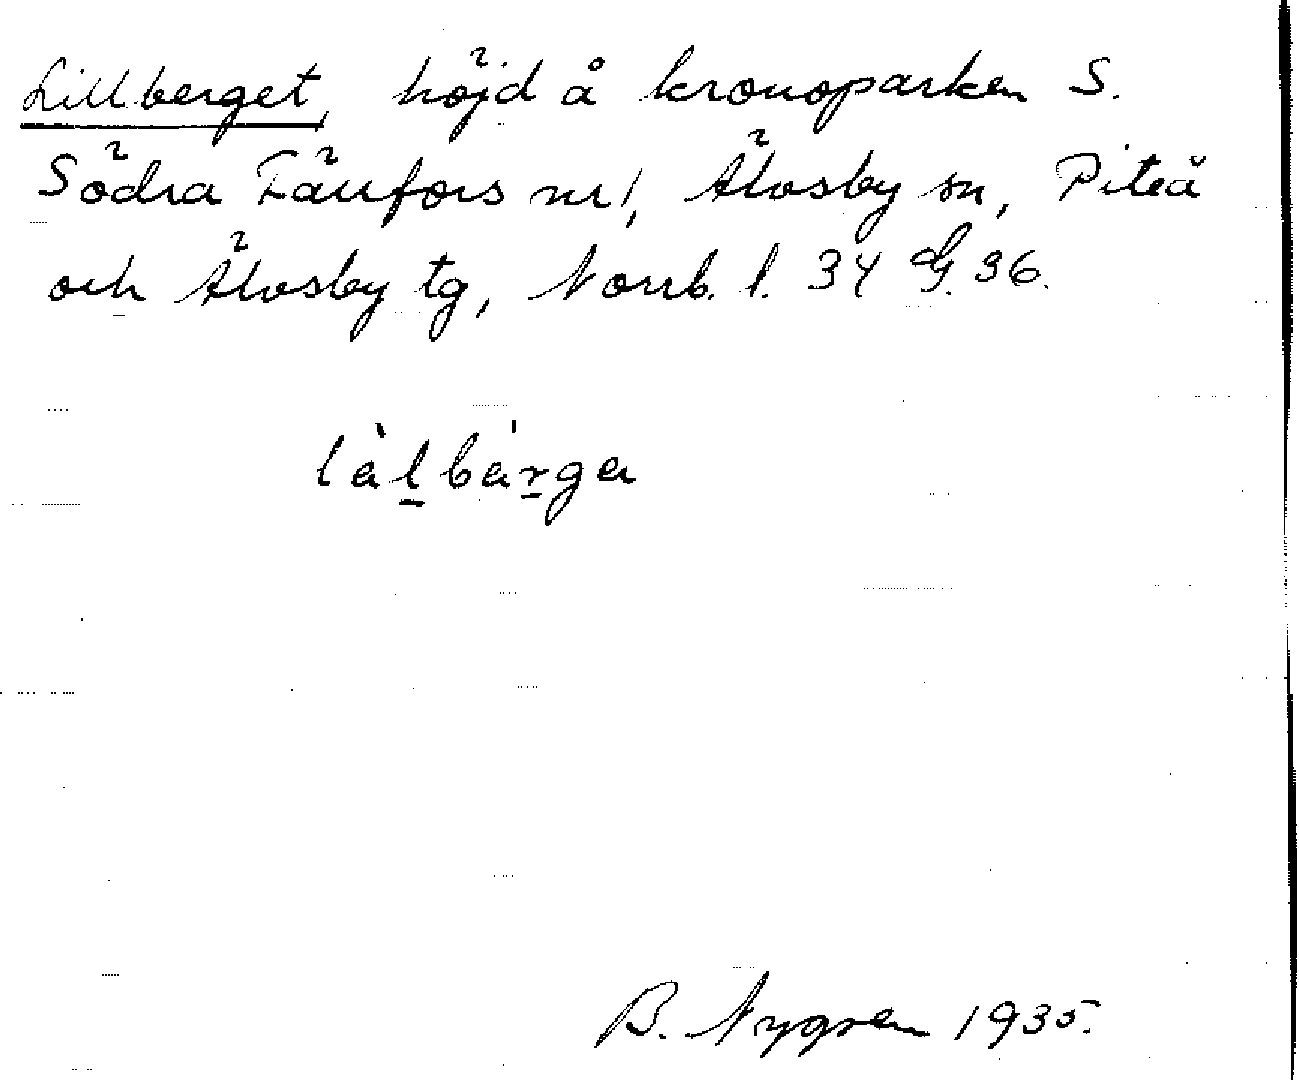 Lillberget, höjd å kronoparken S.
Södra Tänfors nr 1, Älvsby sn, Piteå
och Älvsby tg, Norrb. l. 34 G. 36.
làḻbá̱rga
B. Nygren 1935.